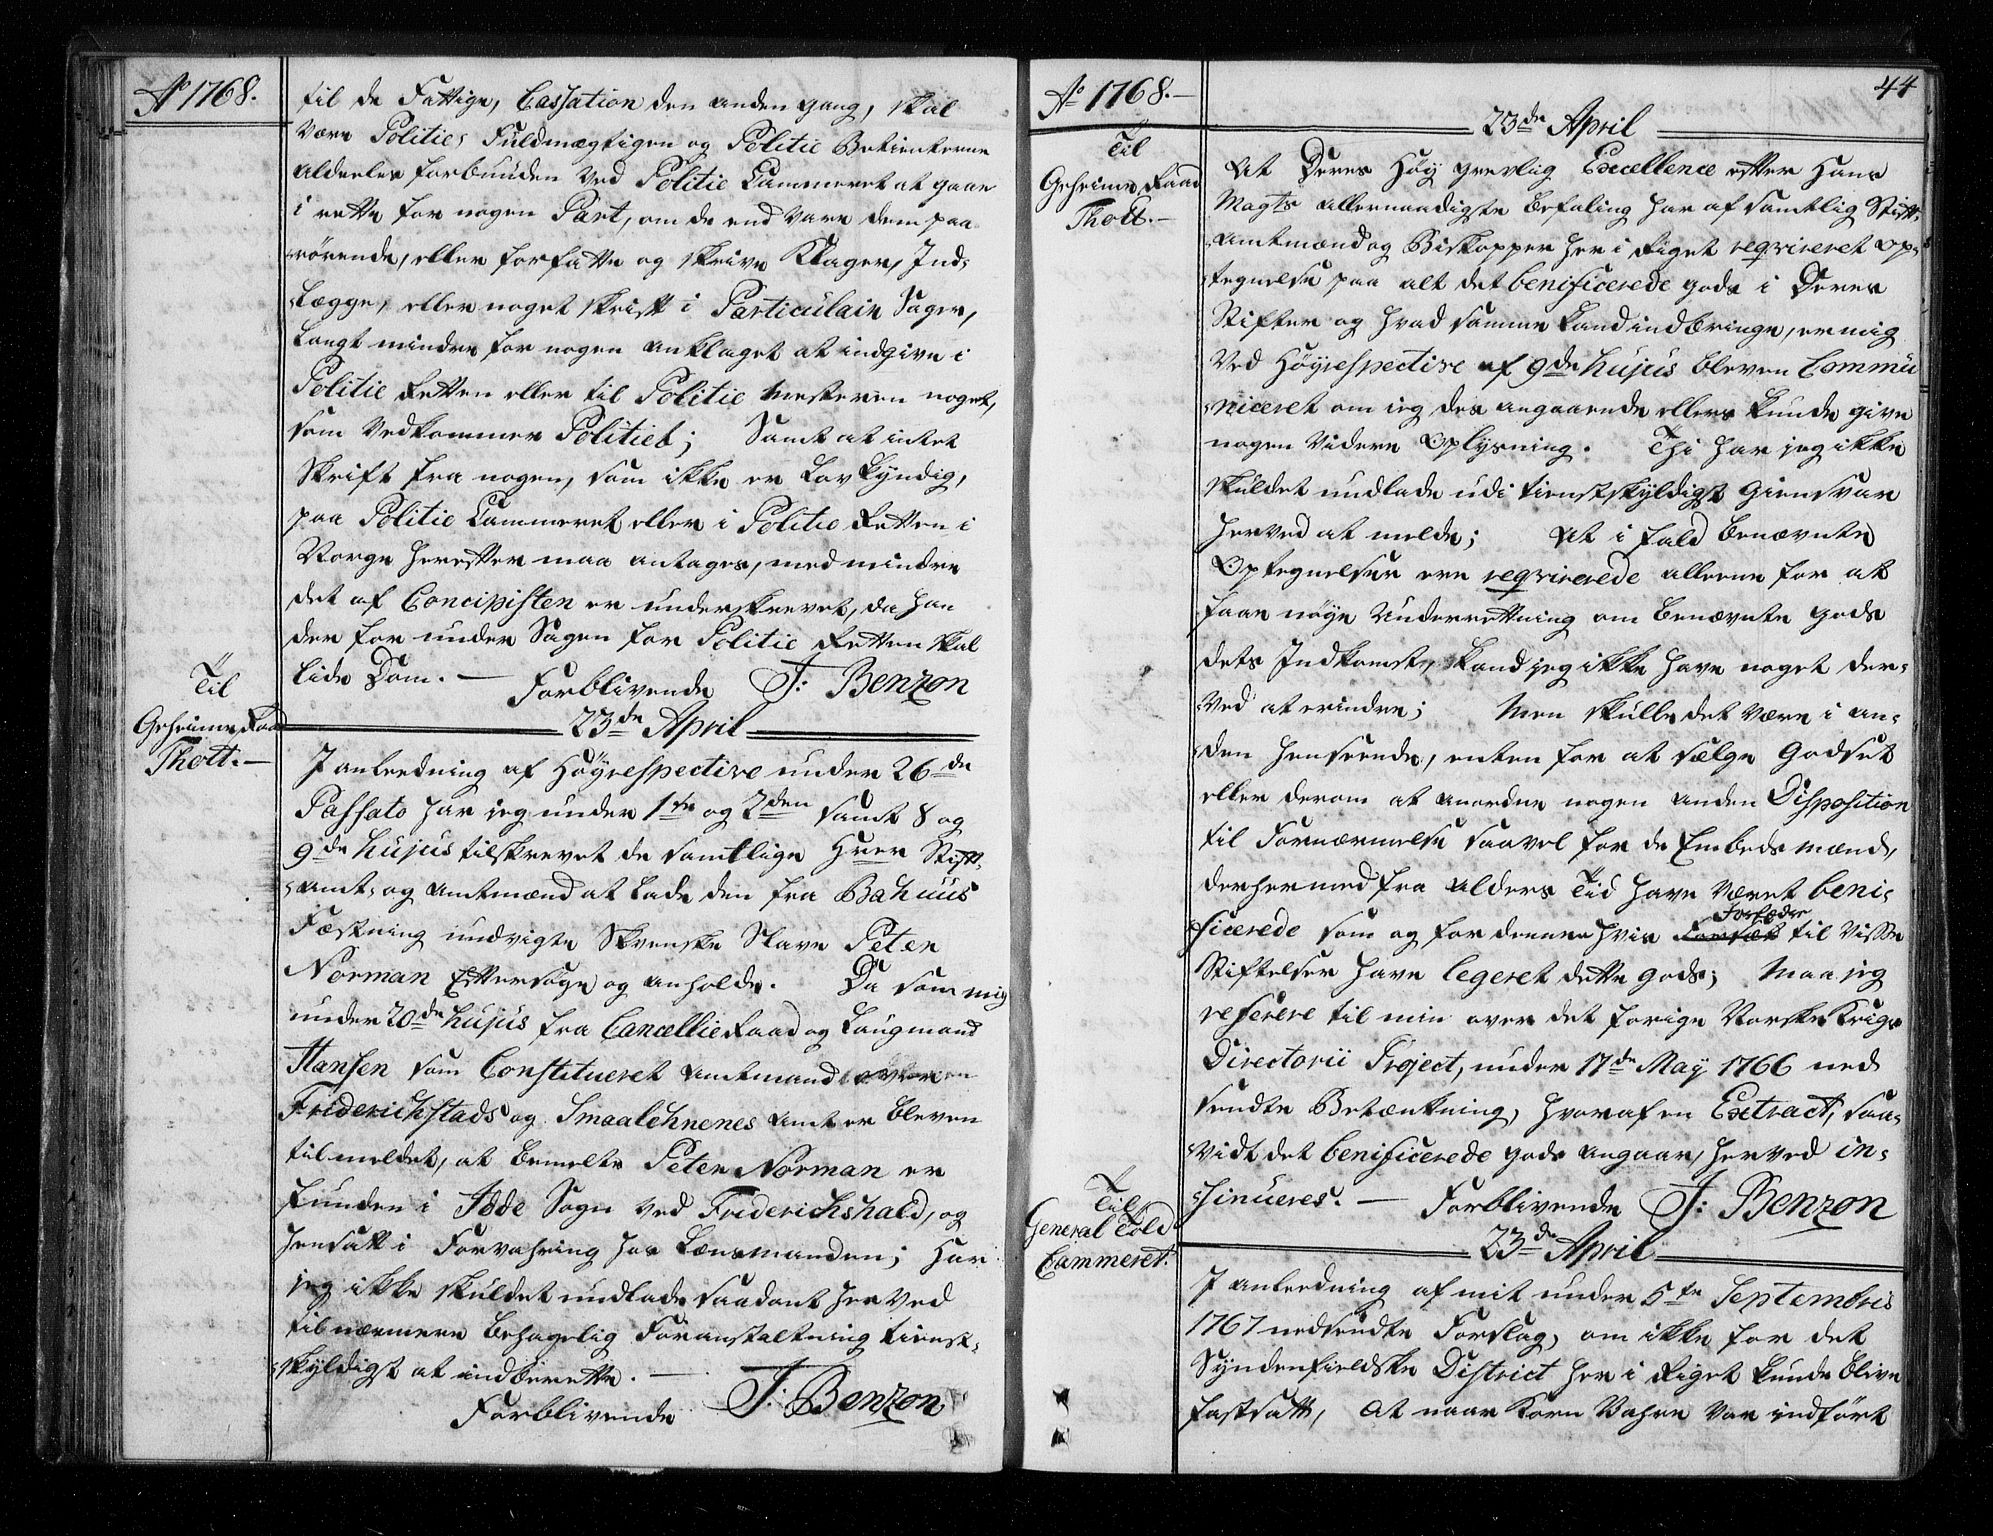 Ao 1768.
til de Fattige, Cassation den anden gang, skal
være Politie Fuldmægtigen og Politie Betienterne
aldeeles forbunden ved Politie Cammeret at gaae
i rette for nogen Part, om de end vare dem paa
rörende, eller forfatte og skrive Klager, Ind-
lægge, eller noget skrift i Particulair Sager,
langt mindre for nogen anklaget at indgive i
Politie Retten eller til Politie Mesteren noget,
som vedkommer Politiet; Samt at intet
Skrift fra nogen, som ikke er Lovkyndig,
paa Politie Cammeret eller i Politie Retten i
Norge herefter maa antages, med mindre
det af Concipisten er underskrevet, da han
der for under Sagen for Politie Retten skal
lide Dom. — Forblivende J: Benzon
Til
Geheime Raad
Thott. —
23de April
I anleedning af Høyrespective under 26de
Passato har jeg under 1te og 2den samt 8 og
9de hujus tilskrevet de samtlige Hrer Stift-
amt- og Amtmænd at lade den fra Bahuus
Fæstning undvigte Svenske Slave Peter
Norman Eftersøge og anholde. Da som mig
under 20de hujus fra Cancellie Raad og Laugmand
Hansen som Constitueret Amtmand over
Friderichstads og Smaalehnenes Amt er bleven
tilmeldet, at bemelte Peter Norman er
funden i Idde Sogn ved Friderichshald, og
hensatt i Forvahring hos Lænsmanden; Har
jeg ikke skuldet undlade saadant herved
til nærmere behagelig Foranstaltning tienst-
skyldigst at indberette. —
Forblivende J: Benzon
Ao 1768. —
44
Til
Geheime Raad
Thott. —
23de April
At Deres Høy grevlig Excellence efter Hans
Mayts allernaadigste befaling har af samtlig Stift-
amtmænd og Biskopper her i Riget reqvireret Op-
tegnelse paa alt det benificerede gods i Deres
Stifter og hvad samme kand indbringe, er mig
ved Høyrespective af 9de hujus bleven Commu
niceret om jeg des angaaende ellers kunde give
nogen videre Oplysning. Thi har jeg ikke
skuldet undlade udi tienstskyldigst Giensvar
herved at melde; At i fald benævnte
Optegnelser ere reqvirerede alleene for at
faae nøye Underretning om benævnte gods
dets Indkomst, kand jeg ikke have noget der-
ved at erindre; Men skulle det være i an-
den henseende, enten for at sælge Godset
eller derom at anordne nogen anden Disposition
til Fornærmelse saavel for de Embedsmænd,
der hermed fra Alders Tid have været beni-
ficerede som og for dennem hvis Forfædre
til visse
Stiftelser have legeret dette gods; Maa jeg
referere til min over det forige Norske Krigs
Directorii Project, under 17de May 1766 ned
sendte Betænkning, hvoraf en Extract, saa-
vidt det benificerede gods angaar, herved in-
sinueres. — Forblivende J: Benzon
Til
General Told
Cammeret.
23de April
I anleedning af mit under 5te Septembris
1767 nedsendte Forslag, om ikke for det
Syndenfieldske District her i Riget kunde blive
fastsatt, At naar Korn Vahre var indført